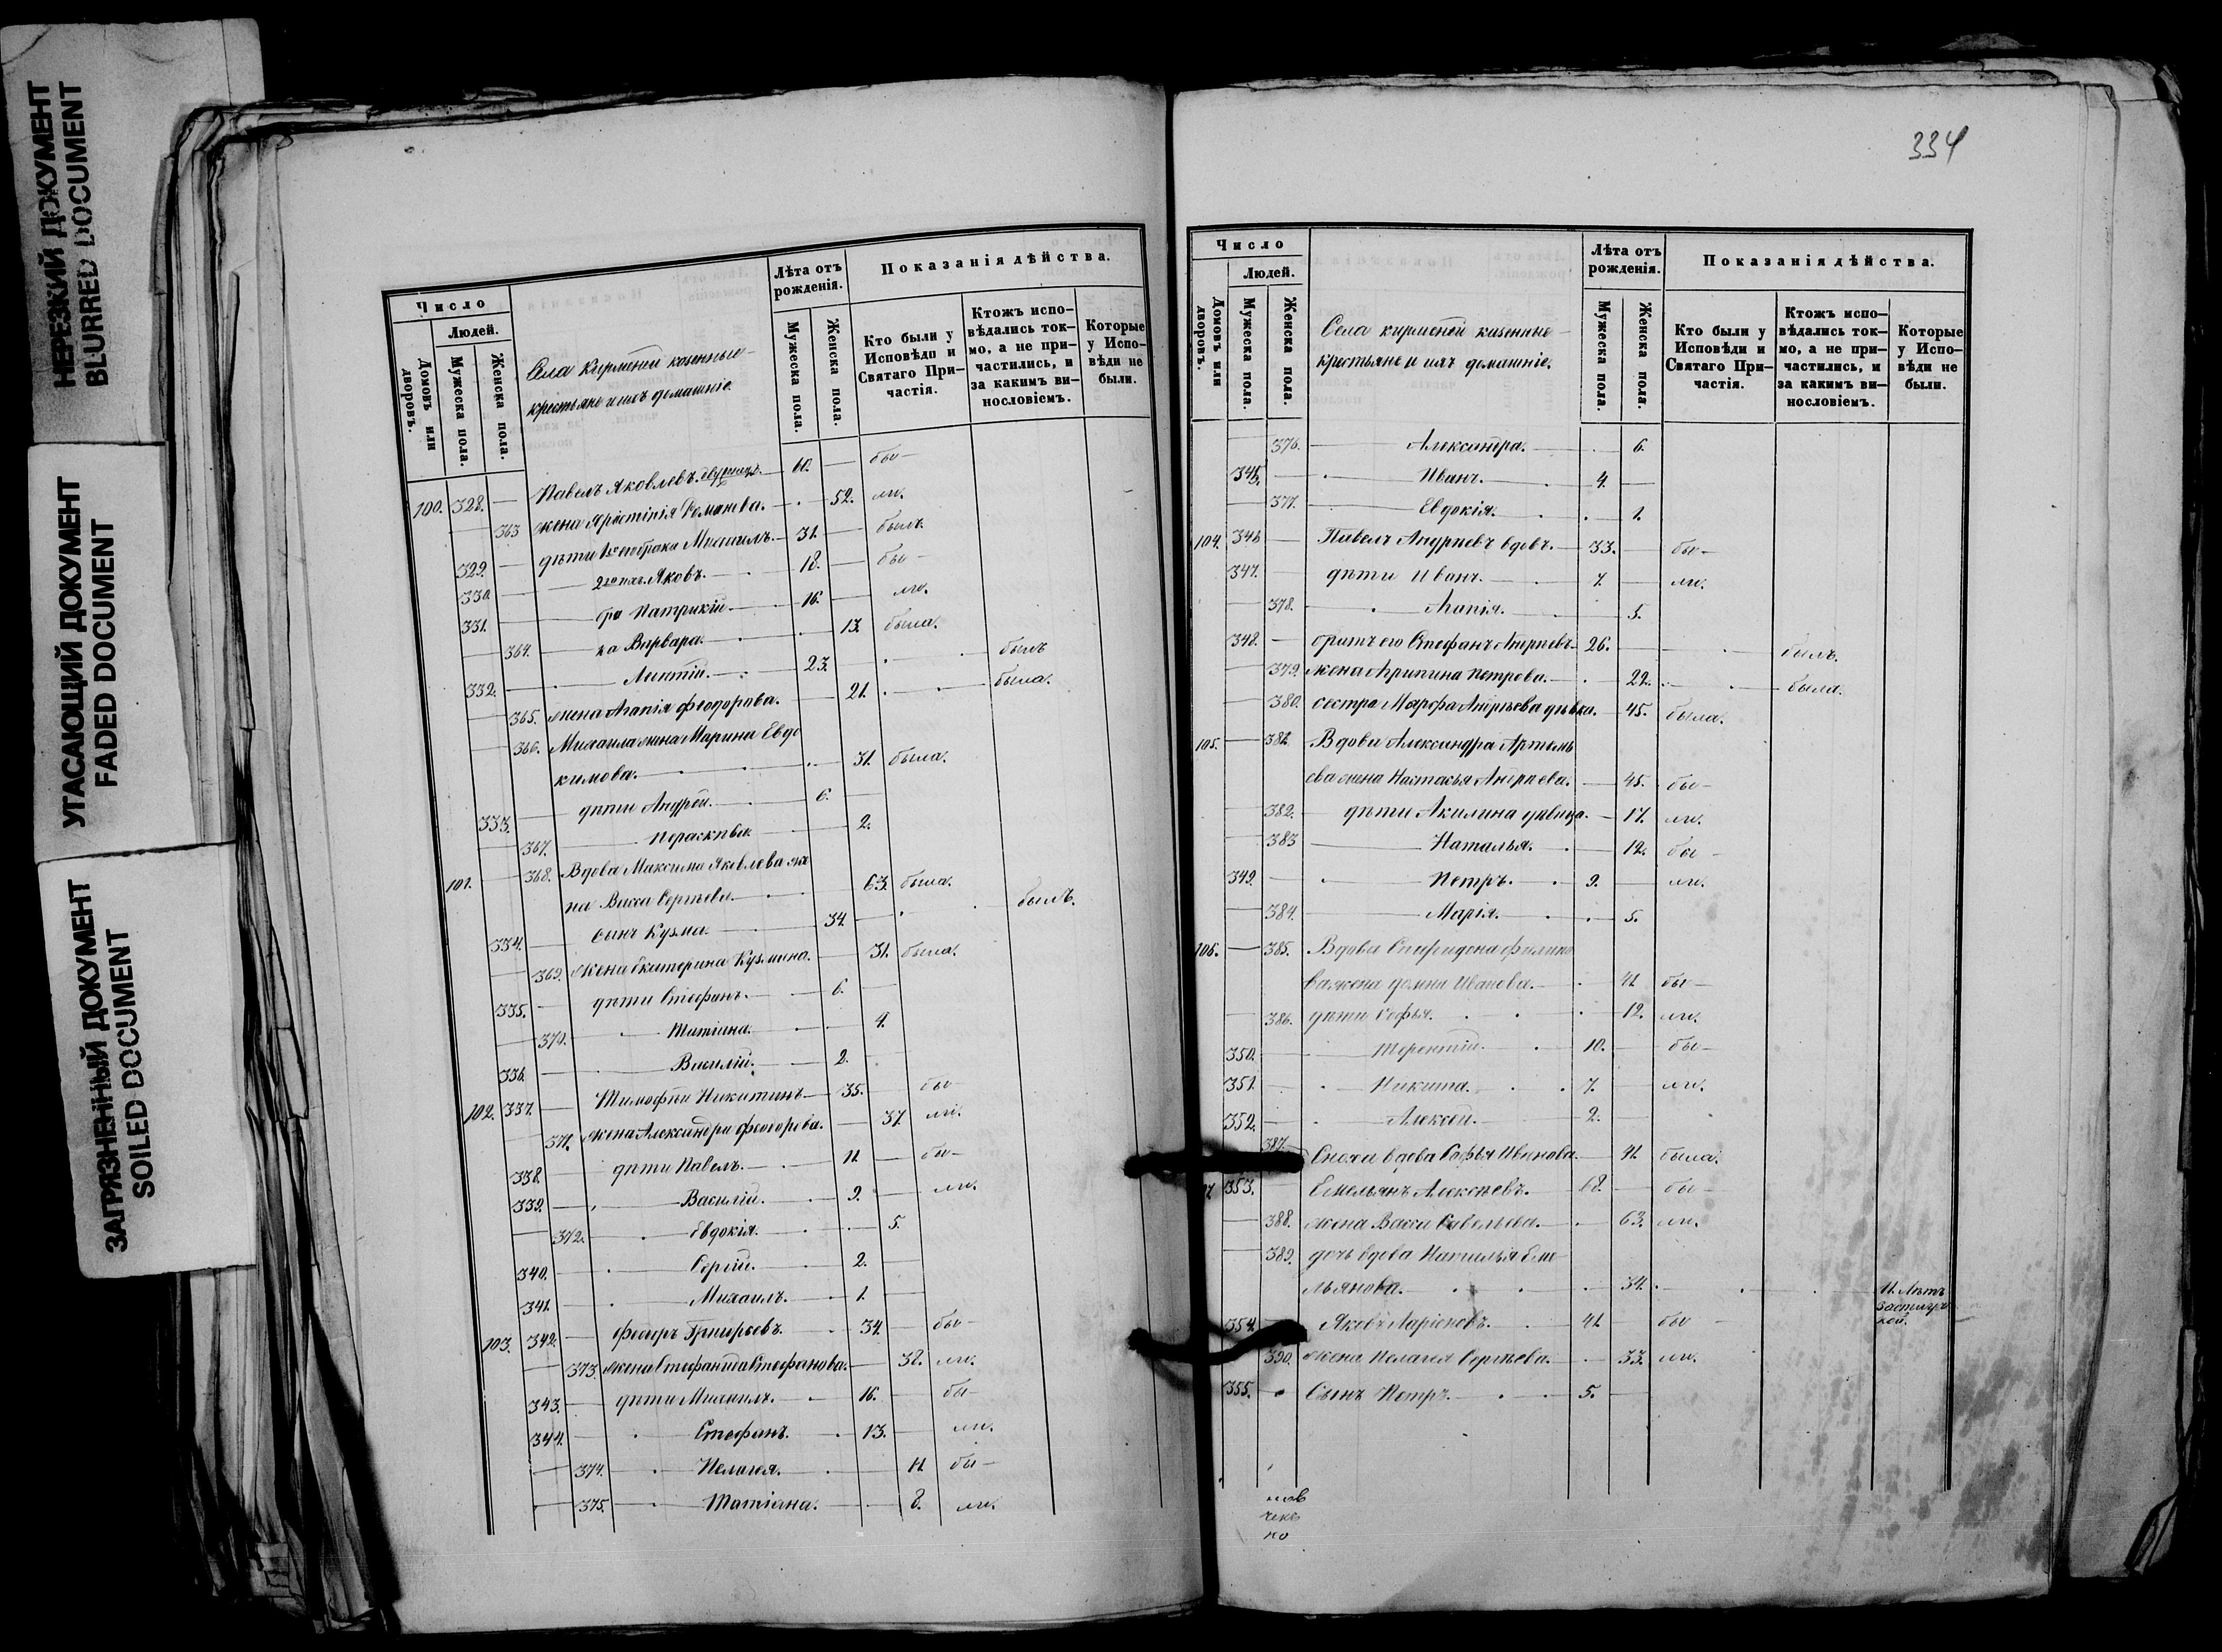 НЕРЕЗКИЙ ДОКУМЕНТ
BLURRED DOCUMENT
УГАСАЮЩИЙ ДОКУМЕНТ
FADED DOCUMENT
ЗАГРЯЗНЕННЫЙ ДОКУМЕНТ
SOILED DOCUMENT
Число
Людей.
Домовъ или дворовъ.
Мужеска пола.
Женска пола.
Села Кирменей казенные
крестьяне и ихъ домашніе.
Лѣта отъ рожденія.
Мужеска пола.
Женска пола.
Показанія дѣйства.
Кто были у Исповѣди и Святаго Причастія.
Ктожъ исповѣдались токмо, а не причастились, и за какимъ винословіемъ.
Которые у Исповѣди не были.
100. 328. — Павелъ Яковлевъ 60. — бы-
363 жена Романова. 52. ли.
329. дѣти Михаилъ. 31. — былъ
330. Яковъ. 18. — бы-
331. Патрикій 16. — ли.
364. Варвара. 13. была.
332. 23. былъ
365. жена Агапія Феодорова. 21. была.
366. Михаила жена Марина Евдо
кимова. 31. была.
333. дѣти Андрей. 6.
367. Параскева 2.
101. 368. Вдова Максима Яковлева же
на Васса Сергѣева. 63. была.
334. сынъ Кузма. 34. былъ.
369. жена Екатерина Кузмина. 31. была.
335. дѣти Стефанъ. 6.
370. Татіана. 4.
336. Василій. 2.
102. 337. Тимофей Никитинъ 35. бы
371. жена Александра Феодорова. 37. ли.
338. дѣти Павелъ. 11. бы-
339. Василій. 9. ли.
372. Евдокія. 5.
340. Сергій. 2.
341. Михаилъ. 1.
103. 342. Феодоръ Григорьевъ. 34. бы-
373. жена Стефанида Стефанова. 38. ли.
343. дѣти Михаилъ. 16. бы-
344. Стефанъ. 13. ли.
374. Пелагея. 11. бы-
375. Татіана. 8. ли.
334
Число
Людей.
Домовъ или дворовъ.
Мужеска пола.
Женска пола.
Села кирменей казенные
крестьяне и ихъ домашніе.
Лѣта отъ рожденія.
Мужеска пола.
Женска пола.
Показанія дѣйства.
Кто были у Исповѣди и Святаго Причастія.
Ктожъ исповѣдались токмо, а не причастились, и за какимъ винословіемъ.
Которые у Исповѣди не были.
376. Александра. 6.
345. Иванъ. 4.
377. Евдокія. 1.
104. 346 Павелъ Андреевъ вдовъ. 33. бы-
347. дѣти Иванъ. 7. ли.
378. Агапія. 5.
348. братъ его Стефанъ Андреевъ 26. былъ.
379. жена Агрипина Петрова. 22. была.
380. сестра Марфа Андреева дѣвка. 45. была.
105. 381. Вдова Александра Артемь
ева жена Настасья Андреева. 45. бы-
382. дѣти Акилина дѣвица. 17. ли.
383 Наталья. 12. бы-
349. Петръ. 9. ли.
384. Марія. 5.
106. 385. Вдова Спиридона Филипо
ва жена Домна Иванова. 41. бы-
386. дѣти Софья. 12. ли.
350. Терентій. 10. бы-
351. Никита. 7. ли.
352. Алексей. 2.
387. Сноха вдова Софья Иванова. 41. была.
353. Емельянъ Алексѣевъ. 68. бы-
388. жена Васса Савельева. 63. ли.
389. дочь вдова Наталья Еме
льянова. 34.
354. Яковъ Ларіоновъ. 41. бы
390. жена Пелагея Сергѣева. 33. ли.
355. Сынъ Петръ. 5.